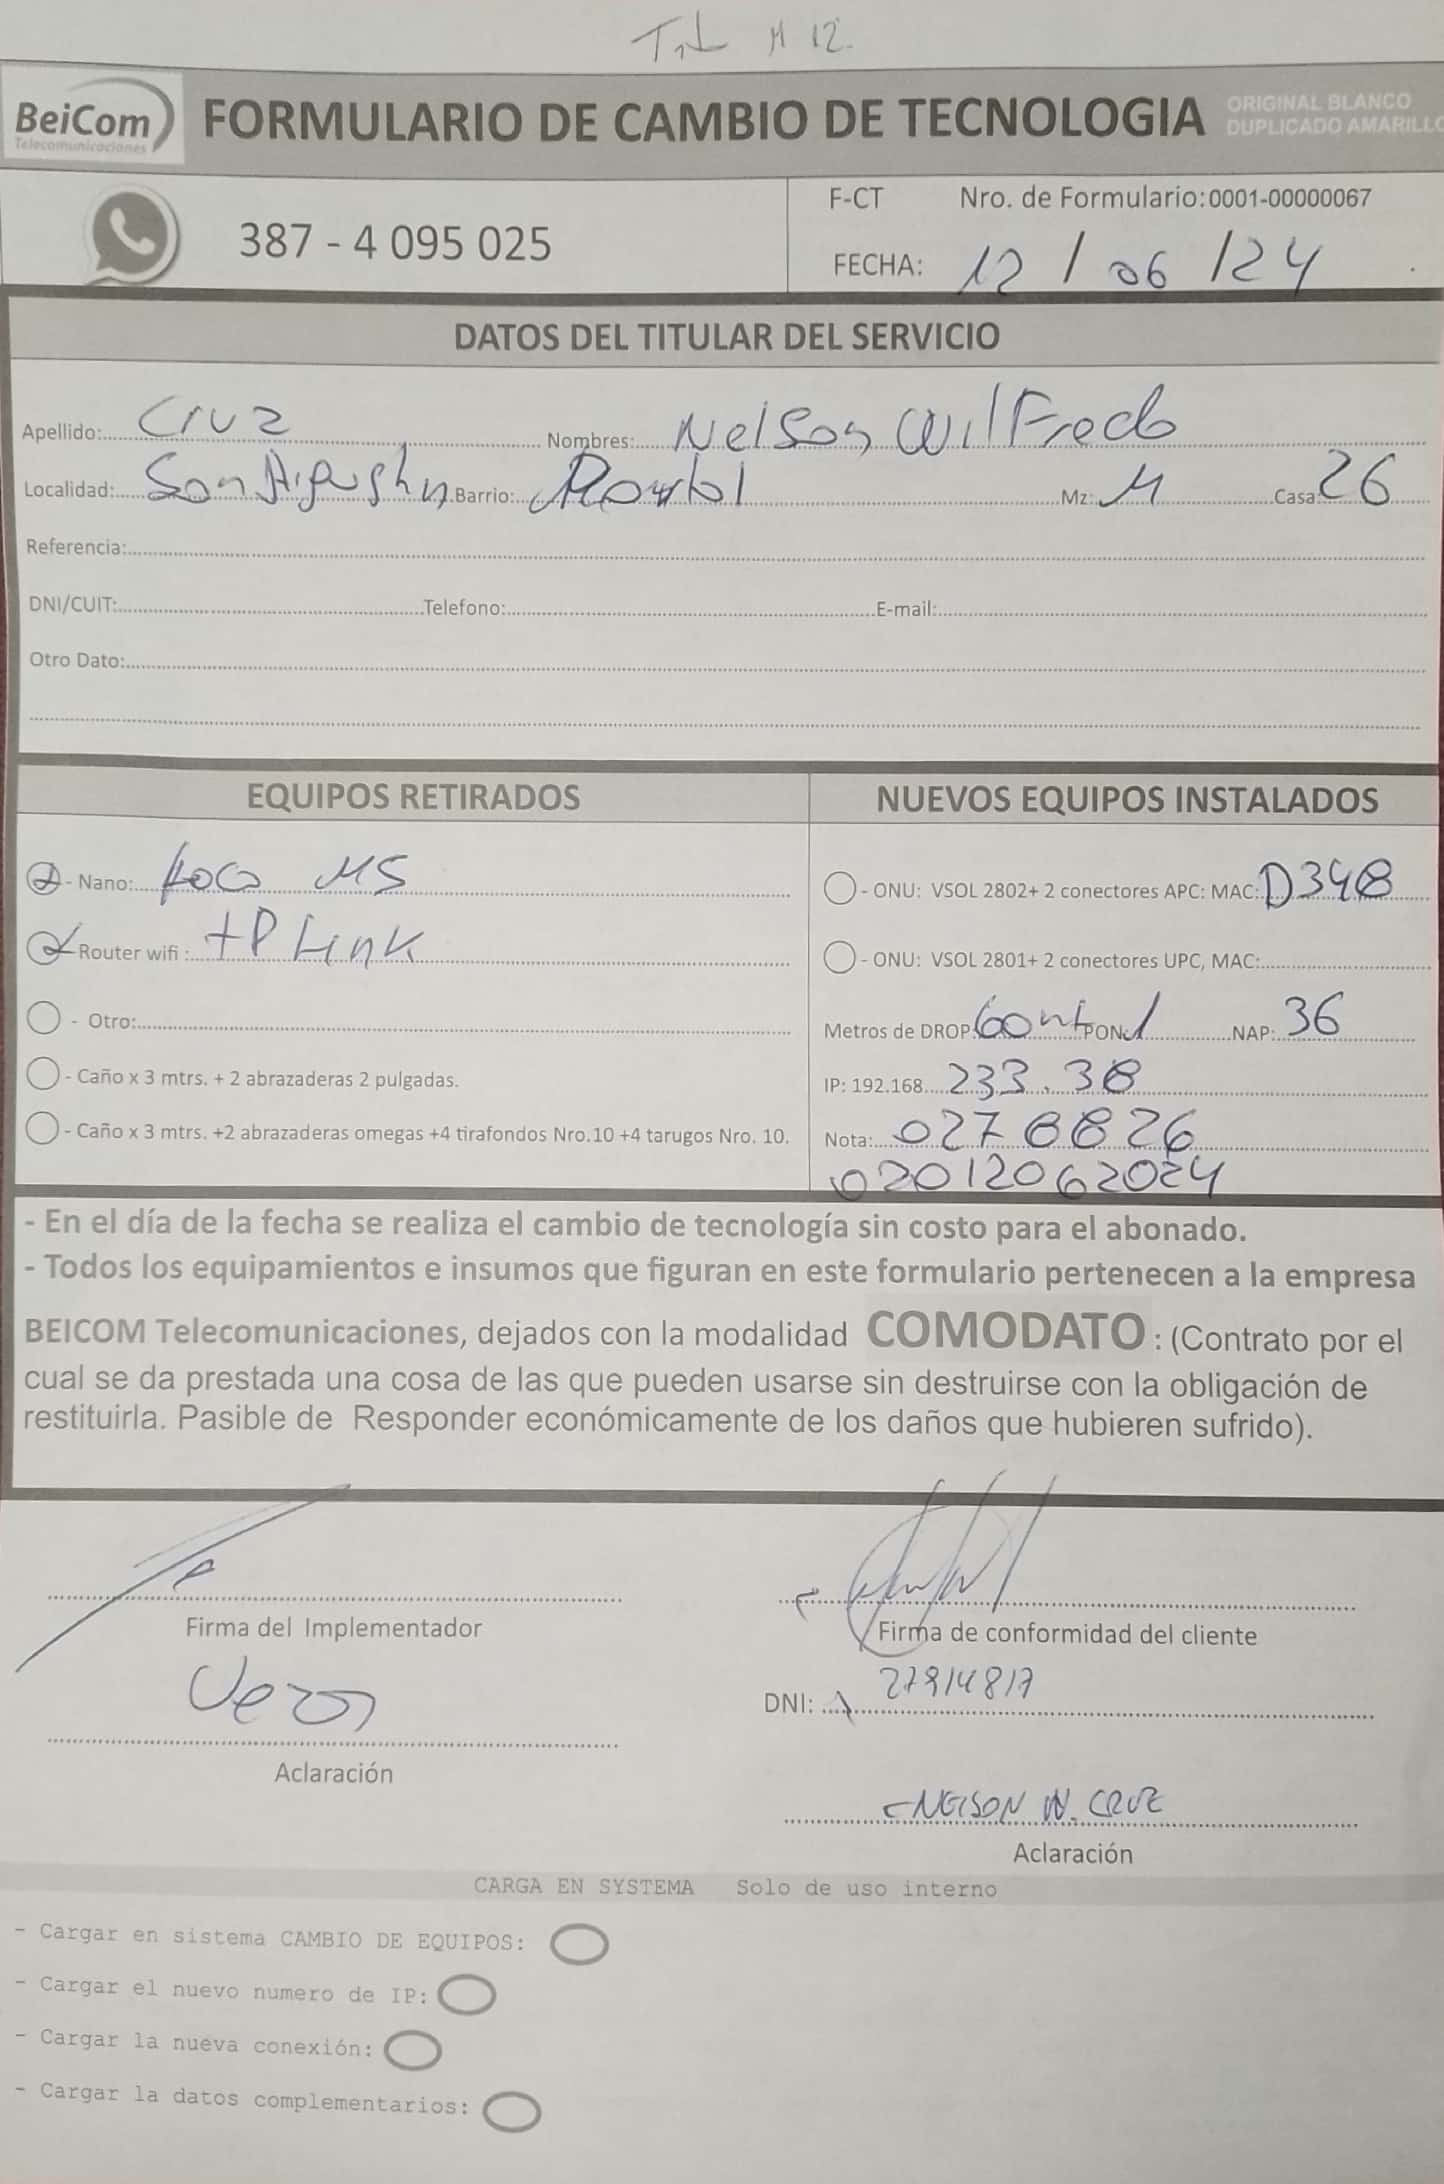 M 12.
BeiCom
Telecomunicaciones
FORMULARIO DE CAMBIO DE TECNOLOGIA
ORIGINAL BLANCO
DUPLICADO AMARILLO
387 - 4 095 025
F-CT Nro. de Formulario:0001-00000067
FECHA: 12 / 06 / 24
DATOS DEL TITULAR DEL SERVICIO
Apellido: Cruz Nombres: Nelson Wilfredo
Localidad: San Agustin Barrio: Mz: M Casa: 26
Referencia:
DNI/CUIT: Telefono: E-mail:
Otro Dato:
EQUIPOS RETIRADOS
- Nano: Loco M5
- Router wifi : tP Link
- Otro:
- Caño x 3 mtrs. + 2 abrazaderas 2 pulgadas.
- Caño x 3 mtrs. +2 abrazaderas omegas +4 tirafondos Nro.10 +4 tarugos Nro. 10.
NUEVOS EQUIPOS INSTALADOS
- ONU: VSOL 2802+ 2 conectores APC: MAC: D348
- ONU: VSOL 2801+ 2 conectores UPC, MAC:
Metros de DROP: 60 mt PON: 1 NAP: 36
IP: 192.168. 233.38
Nota: 0278826
02012062024
- En el día de la fecha se realiza el cambio de tecnología sin costo para el abonado.
- Todos los equipamientos e insumos que figuran en este formulario pertenecen a la empresa
BEICOM Telecomunicaciones, dejados con la modalidad COMODATO : (Contrato por el
cual se da prestada una cosa de las que pueden usarse sin destruirse con la obligación de
restituirla. Pasible de Responder económicamente de los daños que hubieren sufrido).
Firma del Implementador
Aclaración
Firma de conformidad del cliente
DNI: 27914817
NELSON W. CRUZ
Aclaración
CARGA EN SYSTEMA Solo de uso interno
- Cargar en sistema CAMBIO DE EQUIPOS:
- Cargar el nuevo numero de IP:
- Cargar la nueva conexión:
- Cargar la datos complementarios: